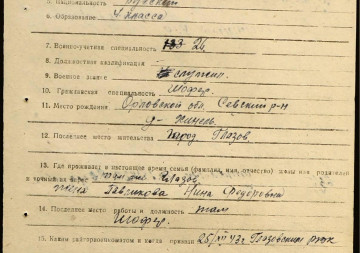 5. Национальность Русский
6. Образование 4 класса
7. Военно-учетная специальность 133 - 26
8. Должностная квалификация —
9. Военное звание служил.
10. Гражданская специальность Шофер.
11. Место рождения Орловской обл, Севский р-н
12. Последнее место жительства город Глазов.
13. Где проживает в настоящее время семья (фамилия, имя, отчество) жены или родителей
Глазов
жена Нина Федоровна
14. Последнее место работы и должность там
Шофер.
15. Каким райгорвоенкоматом и когда призван 25/ 43г Глазовским рвк